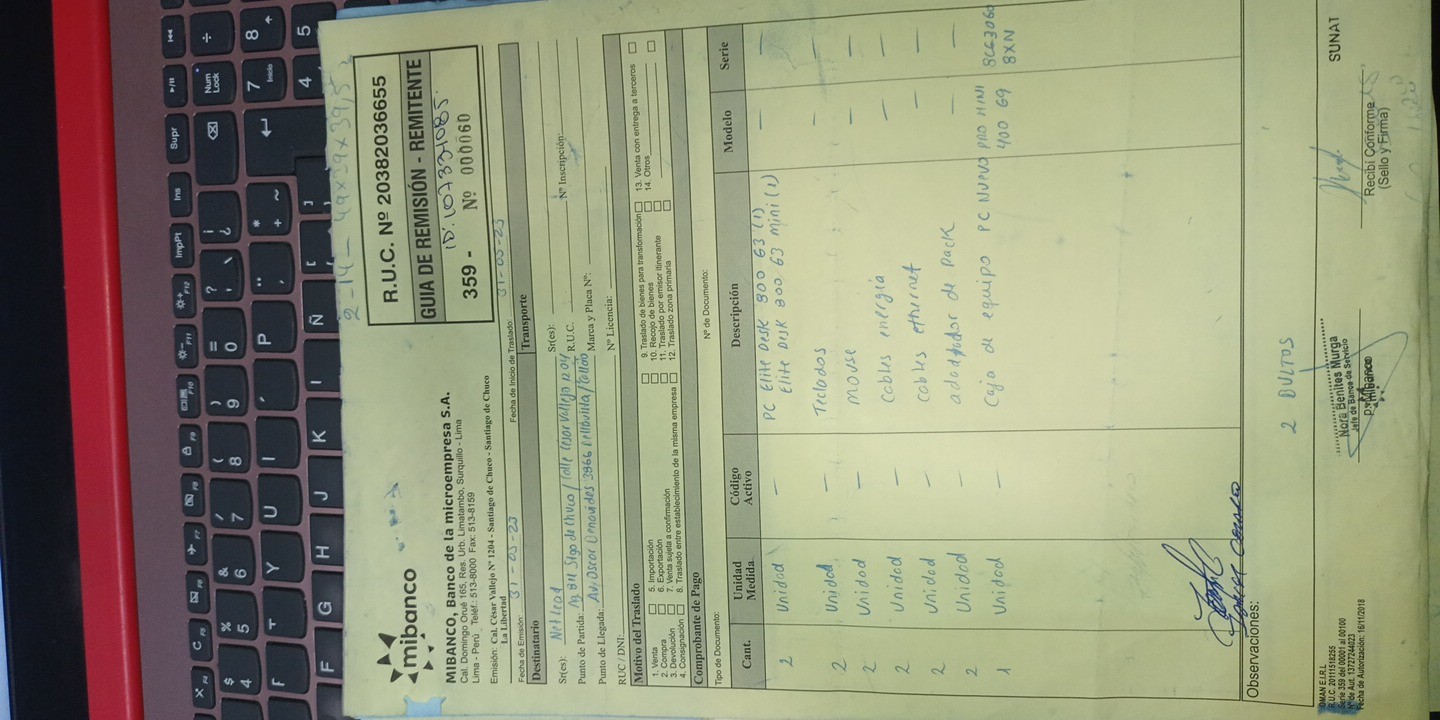 2-14- 49x39x39,5
mibanco
MIBANCO, Banco de la microempresa S.A.
Cal. Domingo Orué 165, Res. Urb. Limatambo, Surquillo - Lima
Lima - Perú. Teléf.: 513-8000 Fax: 513-8159
Emisión: Cal. César Vallejo Nº 1204 - Santiago de Chuco - Santiago de Chuco
La Libertad
R.U.C. Nº 20382036655
GUIA DE REMISIÓN - REMITENTE
ID: 107331085
359 - Nº 000060
Fecha de Emisión: 31-05-23 Fecha de Inicio de Traslado: 31-05-23
Destinatario Transporte
Sr(es): Netlead Sr(es):
Punto de Partida: Ag Bll Stgo de Chuco / Calle Cesar Vallejo 1204 R.U.C. Nº Inscripción:
Punto de Llegada: Av. Oscar Benavides 3866 Bellavista/Callao Marca y Placa Nº:
RUC / DNI: Nº Licencia:
Motivo del Traslado
1. Venta 5. Importación 9. Traslado de bienes para transformación 13. Venta con entrega a terceros
2. Compra 6. Exportación 10. Recojo de bienes 14. Otros
3. Devolución 7. Venta sujeta a confirmación 11. Traslado por emisor itinerante
4. Consignación 8. Traslado entre establecimiento de la misma empresa 12. Traslado zona primaria
Comprobante de Pago
Tipo de Documento: Nº de Documento:
Cant. Unidad Medida Código Activo Descripción Modelo Serie
2 Unidad — PC Elite Desk 800 G3 (1) — —
Elite Desk 800 G3 mini (1)
2 Unidad — Teclados — —
2 Unidad — mouse — —
2 Unidad — cables energia — —
2 Unidad — cables ethernet — —
2 Unidad — adaptador de Pack — —
1 Unidad — Caja de equipo PC NUEVO PRO MINI 400 G9 8CG3060
8XN
Observaciones:
2 BULTOS
OMAN E.I.R.L
R.U.C. 20111518255
Serie 359 del 00001 al 00100
Nº de Aut. 13727244023
Fecha de Autorización: 16/11/2018
Nora Benites Murga
Jefe de Banca de Servicio
Mibanco
p. Mibanco
Recibí Conforme
(Sello y Firma)
SUNAT
ImpPt
Ins
Supr
Num
Lock
Inicio
F
G
H
J
K
L
Ñ
T
Y
U
I
P
$
4
%
5
&
6
/
7
(
8
)
9
=
0
?
¿